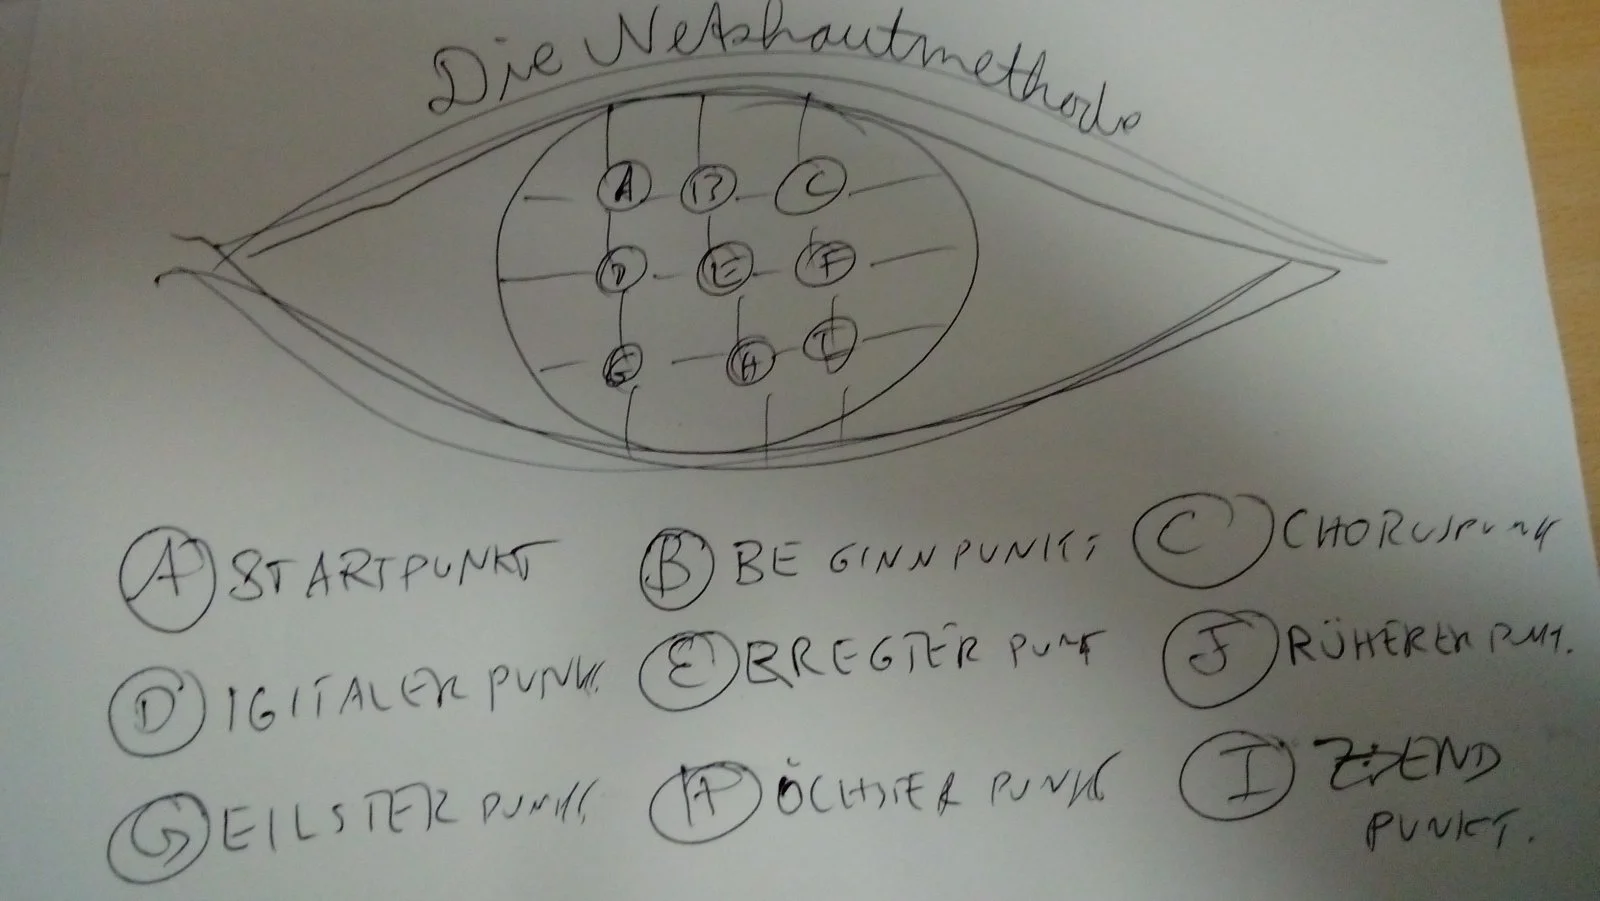 Die Netzhautmethode
A B C
D E F
G H I
A STARTPUNKT B BEGINNPUNKT C CHORUSPUNK
D IGITALER PUNK E ERREGTER PUNT F RÜHERER PUNT.
G EILSTER PUNK H ÖCHSTER PUNK I END
PUNKT.